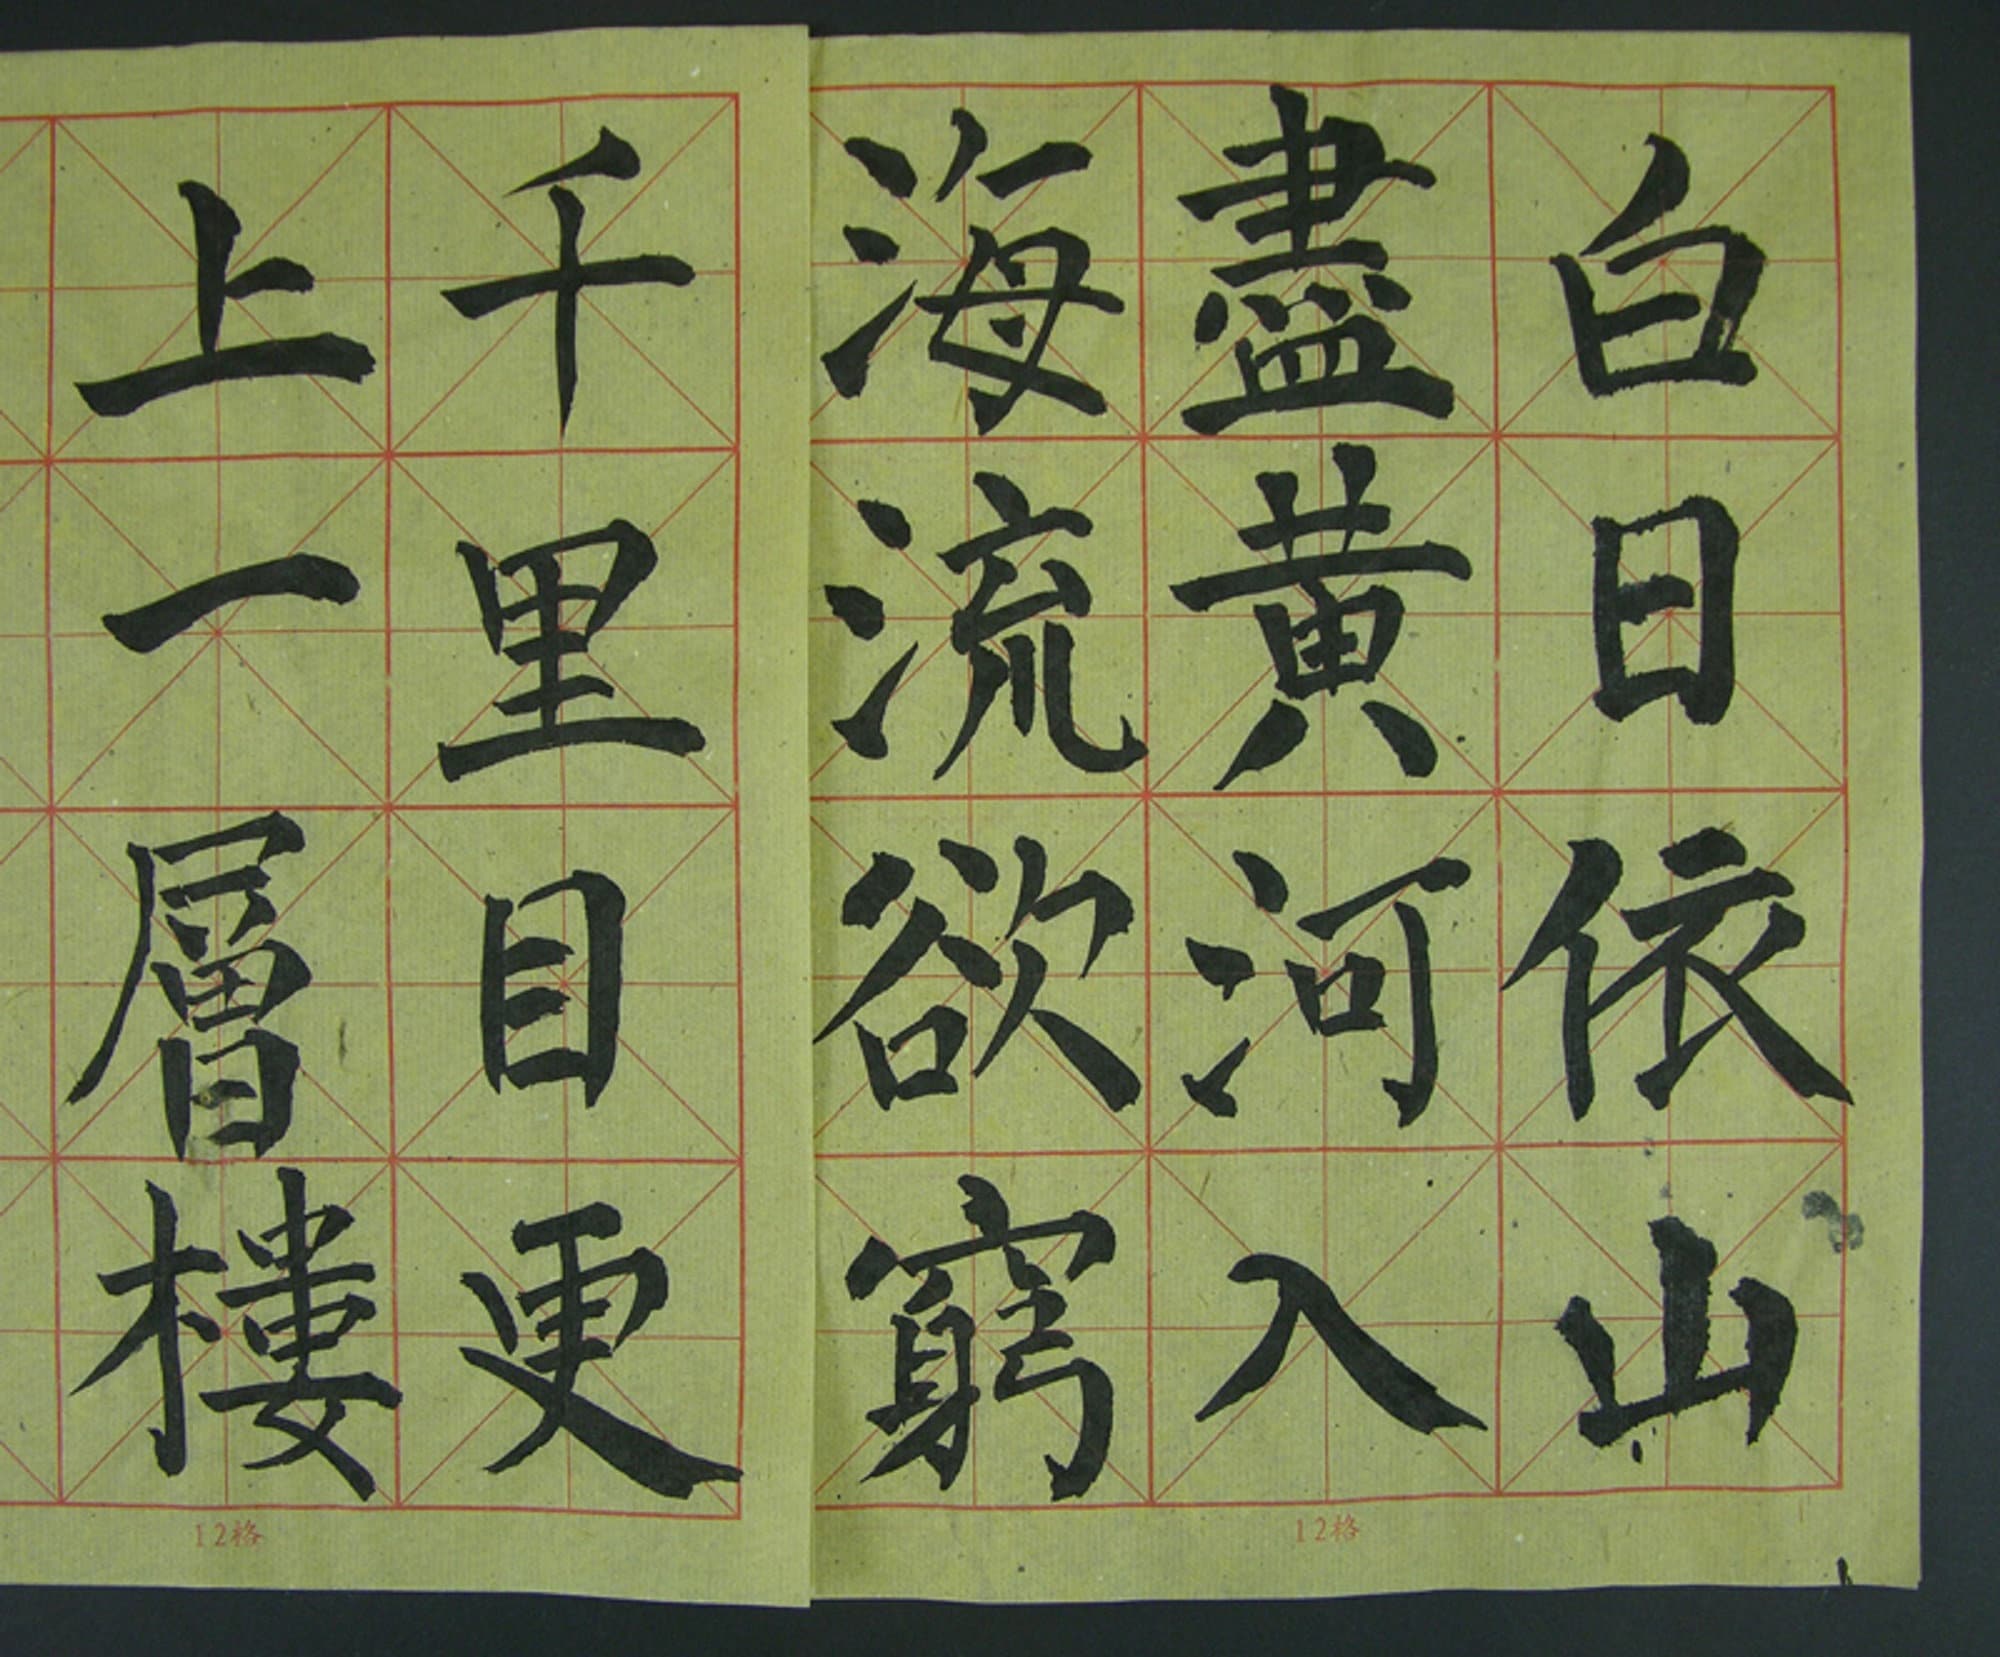 白日依山
盡黄河入
海流欲窮
千里目更
上一層樓
12格
12格